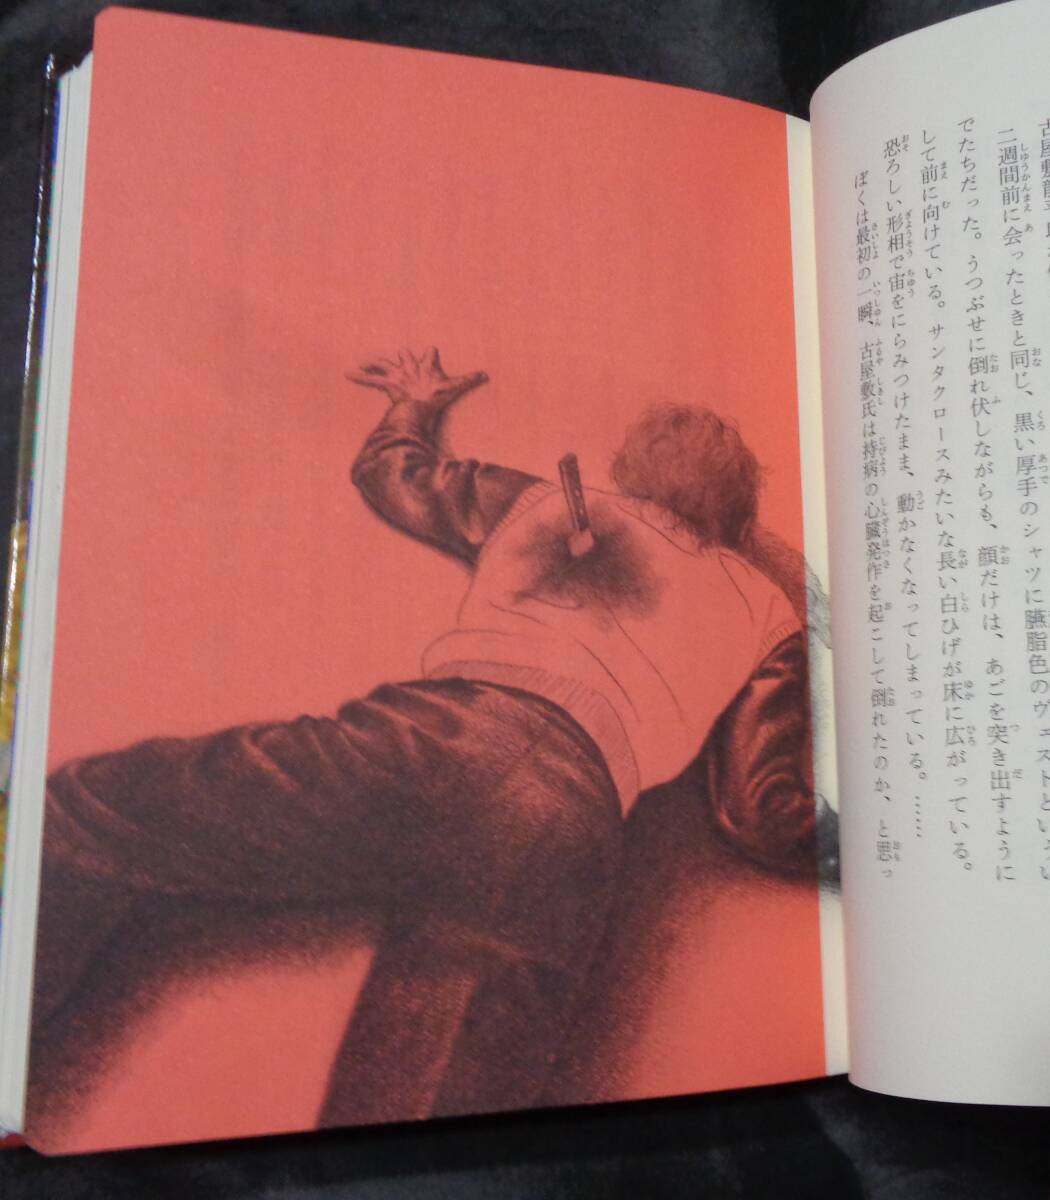 古屋敷
二週間前に会ったときと同じ、黒い厚手のシャツに臙脂色のヴェストというい
でたちだった。うつぶせに倒れ伏しながらも、顔だけは、あごを突き出すように
して前に向けている。サンタクロースみたいな長い白ひげが床に広がっている。
恐ろしい形相で宙をにらみつけたまま、動かなくなってしまっている。……
ぼくは最初の一瞬、古屋敷氏は持病の心臓発作を起こして倒れたのか、と思っ